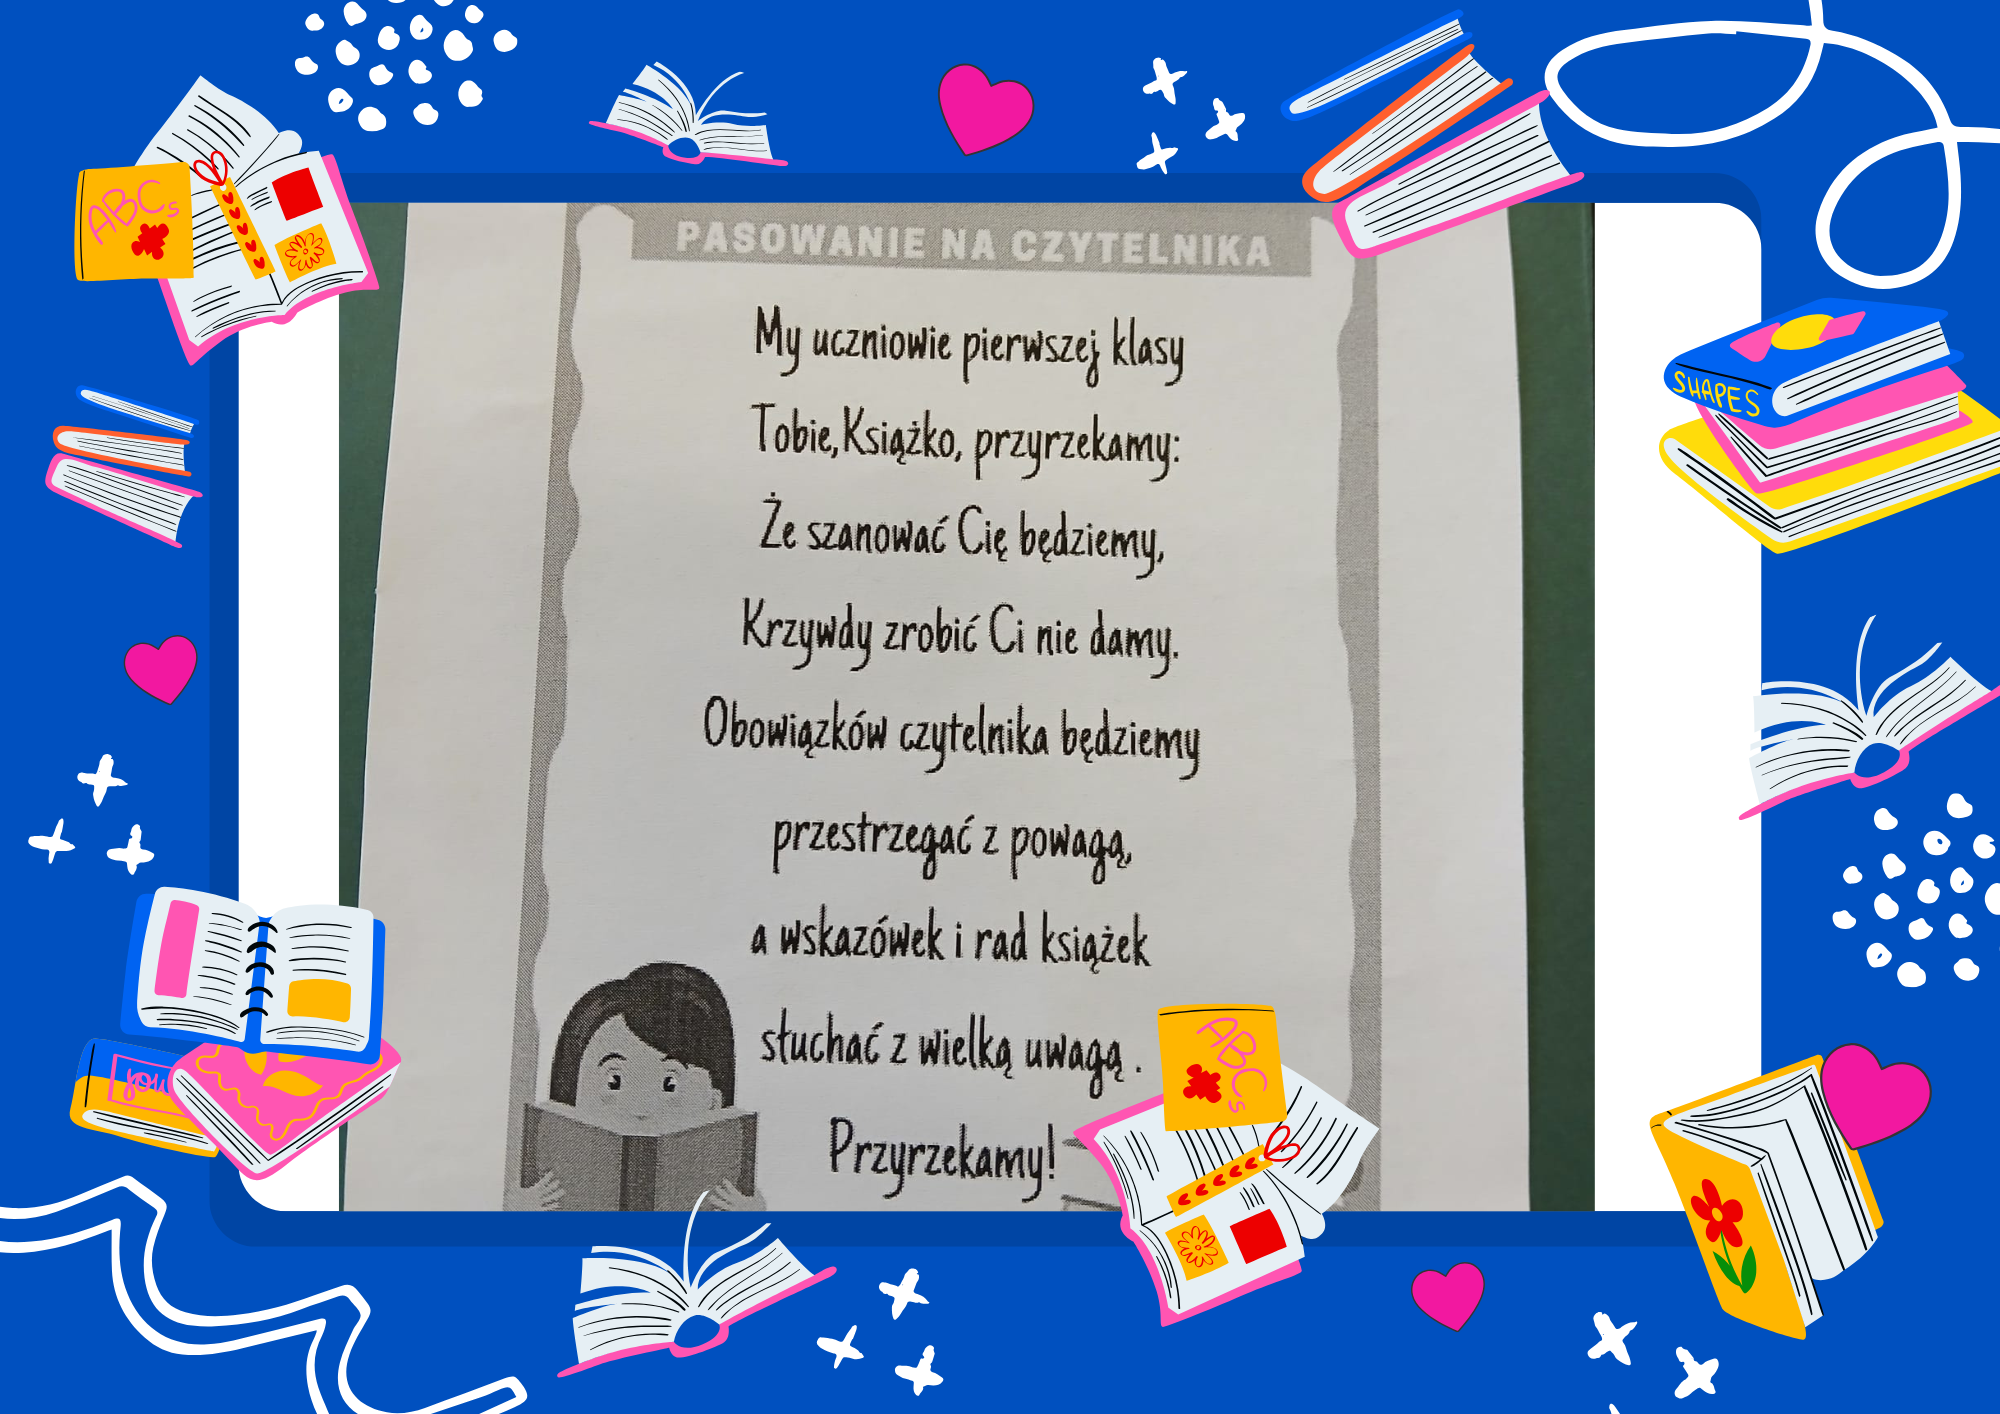 PASOWANIE NA CZYTELNIKA
My uczniowie pierwszej klasy
Tobie,Książko, przyrzekamy:
Że szanować Cię będziemy,
Krzywdy zrobić Ci nie damy.
Obowiązków czytelnika będziemy
przestrzegać z powagą,
a wskazówek i rad książek
słuchać z wielką uwagą .
Przyrzekamy!
ABCs
SHAPES
ABCs